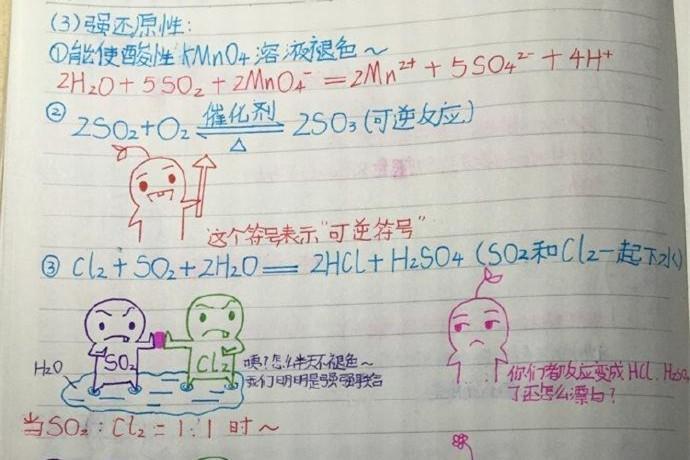 (3)强还原性:
①能使酸性KMnO4溶液褪色~
2H2O+5SO2+2MnO4⁻=2Mn²⁺+5SO4²⁻+4H⁺
② 2SO2+O2 催化剂 △ 2SO3(可逆反应)
这个符号表示"可逆符号"
③ Cl2+SO2+2H2O=2HCl+H2SO4(SO2和Cl2一起下水)
SO2
Cl2
H2O
咦?怎么半天不褪色~
我们明明是强强联合
你们都反应变成HCl、H2SO4
了还怎么漂白?
当SO2:Cl2=1:1时~